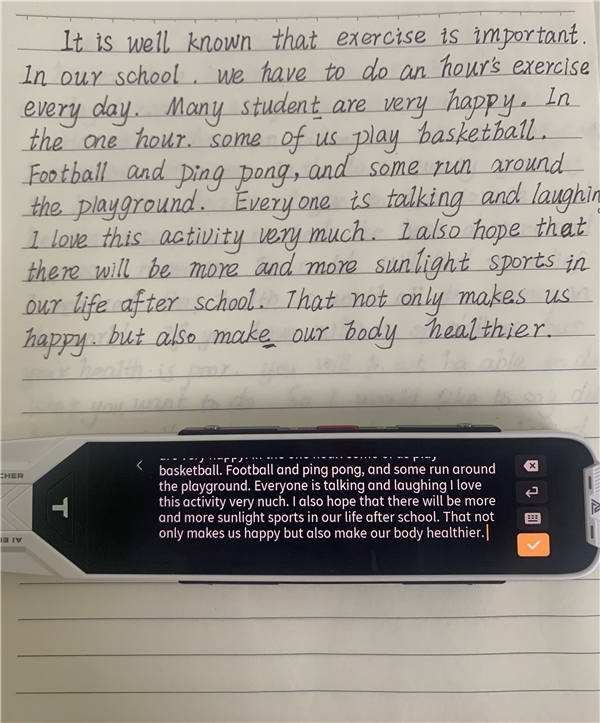 It is well known that exercise is important.
In our school. we have to do an hour's exercise
every day. Many student are very happy. In
the one hour. some of us play basketball.
Football and ping pong, and some run around
the playground. Everyone is talking and laughin
I love this activity very much. I also hope that
there will be more and more sunlight sports in
our life after school. That not only makes us
happy. but also make our body healthier.
are very happy. In the one hour. some of us play
basketball. Football and ping pong, and some run around
the playground. Everyone is talking and laughing I love
this activity very nuch. I also hope that there will be more
and more sunlight sports in our life after school. That not
only makes us happy but also make our body healthier.
CHER
T